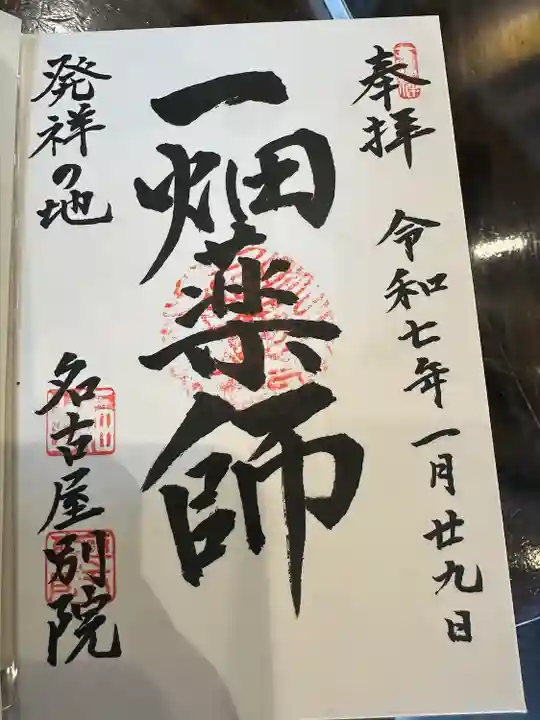 奉拝 令和七年一月廿九日
一畑薬師
発祥の地 名古屋別院